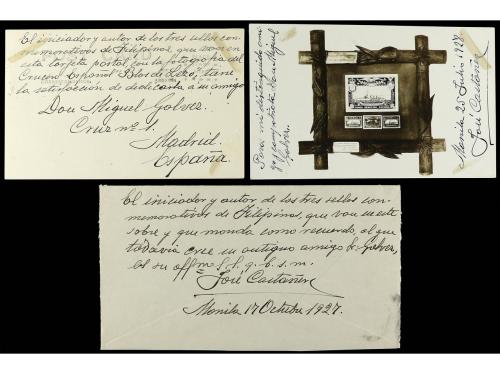 El iniciador y autor de los tres sellos con-
memorativos de Filipinas, que van en
esta tarjeta postal con la fotografia del
Crucero Español "Blas de Lezo", tiene
la satisfacción de dedicarla a su amigo
Don Miguel Galvez.
Cruz nº 1.
Madrid.
España.
Para mi distinguido amigo
y compatriota Don Miguel
Galvez.
Manila 25 Julio. 1927
José Castañer
El iniciador y autor de los tres sellos con-
memorativos de Filipinas, que van en este
sobre y que manda como recuerdo, al que
todavia cree su antiguo amigo Sr. Galvez,
es su affmo s. s. q. b. s. m.
José Castañer
Manila 17 Octubre 1927.